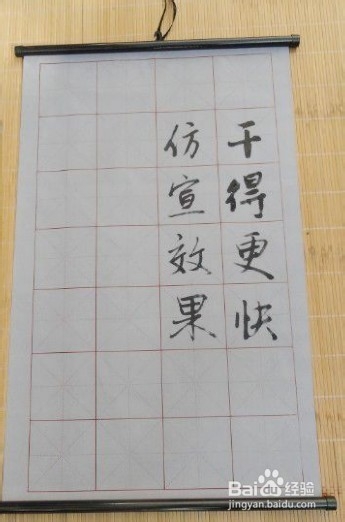 干得更快
仿宣效果
Baidu经验
jingyan.baidu.com